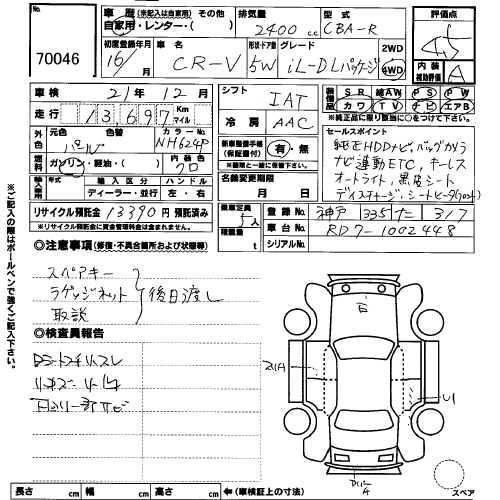 No.
70046
車歴 (※記入は自家用) その他
自家用・レンター・( )
排気量
2400 cc
型式
CBA-R
評価点
初度登録年月
16/ 月
車名
CR-V
形状・ドア数
5W
グレード
iL-DLパッケージ
2WD
4WD
内装
補助評価
A
車検
21年12月
走行
13697 Km マイル
シフト
IAT
冷房
AAC
装備品
SR 純AW PS PW
カワ TV ナビ エアB
※純正品に限り該当に○をつけて下さい。
外色
元色
パール
色替
カラーNo.
NH624P
新車整備手帳
(保証書付)
有・無
※車両と一緒に保管して下さい。
セールスポイント
純正HDDナビ、バックカメラ
ナビ連動ETC、キーレス
オートライト、黒革シート
ディスチャージ、シートヒータ(フロント)
燃料
ガソリン・軽油・( )
内装色
クロ
名義変更期限
月 日
輸入車
年式
輸入区分
ディーラー・並行
ハンドル
左・右
リサイクル預託金 13390 円 預託済み
※リサイクル預託金に資金管理料金は含まれません。
乗車定員
5人
積載量
t
登録
神戸 335 た 317
車台No.
RD7-1002448
シリアルNo.
◎注意事項 (修復・不具合箇所および状態等)
スペアキー
ラゲッジネット
取説
後日渡し
◎検査員報告
※ご記入の際はボールペンで強くご記入下さい。
長さ cm 幅 cm 高さ cm ←(車検証上の寸法)
スペア